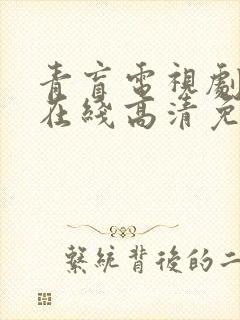 青盲電視劇
在綫高清免
繫統背後的二